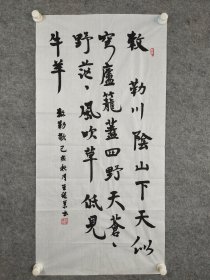 敕勒川陰山下天似
穹廬籠蓋四野天蒼、
野茫、風吹草低見
牛羊
敕勒歌 己亥秋月